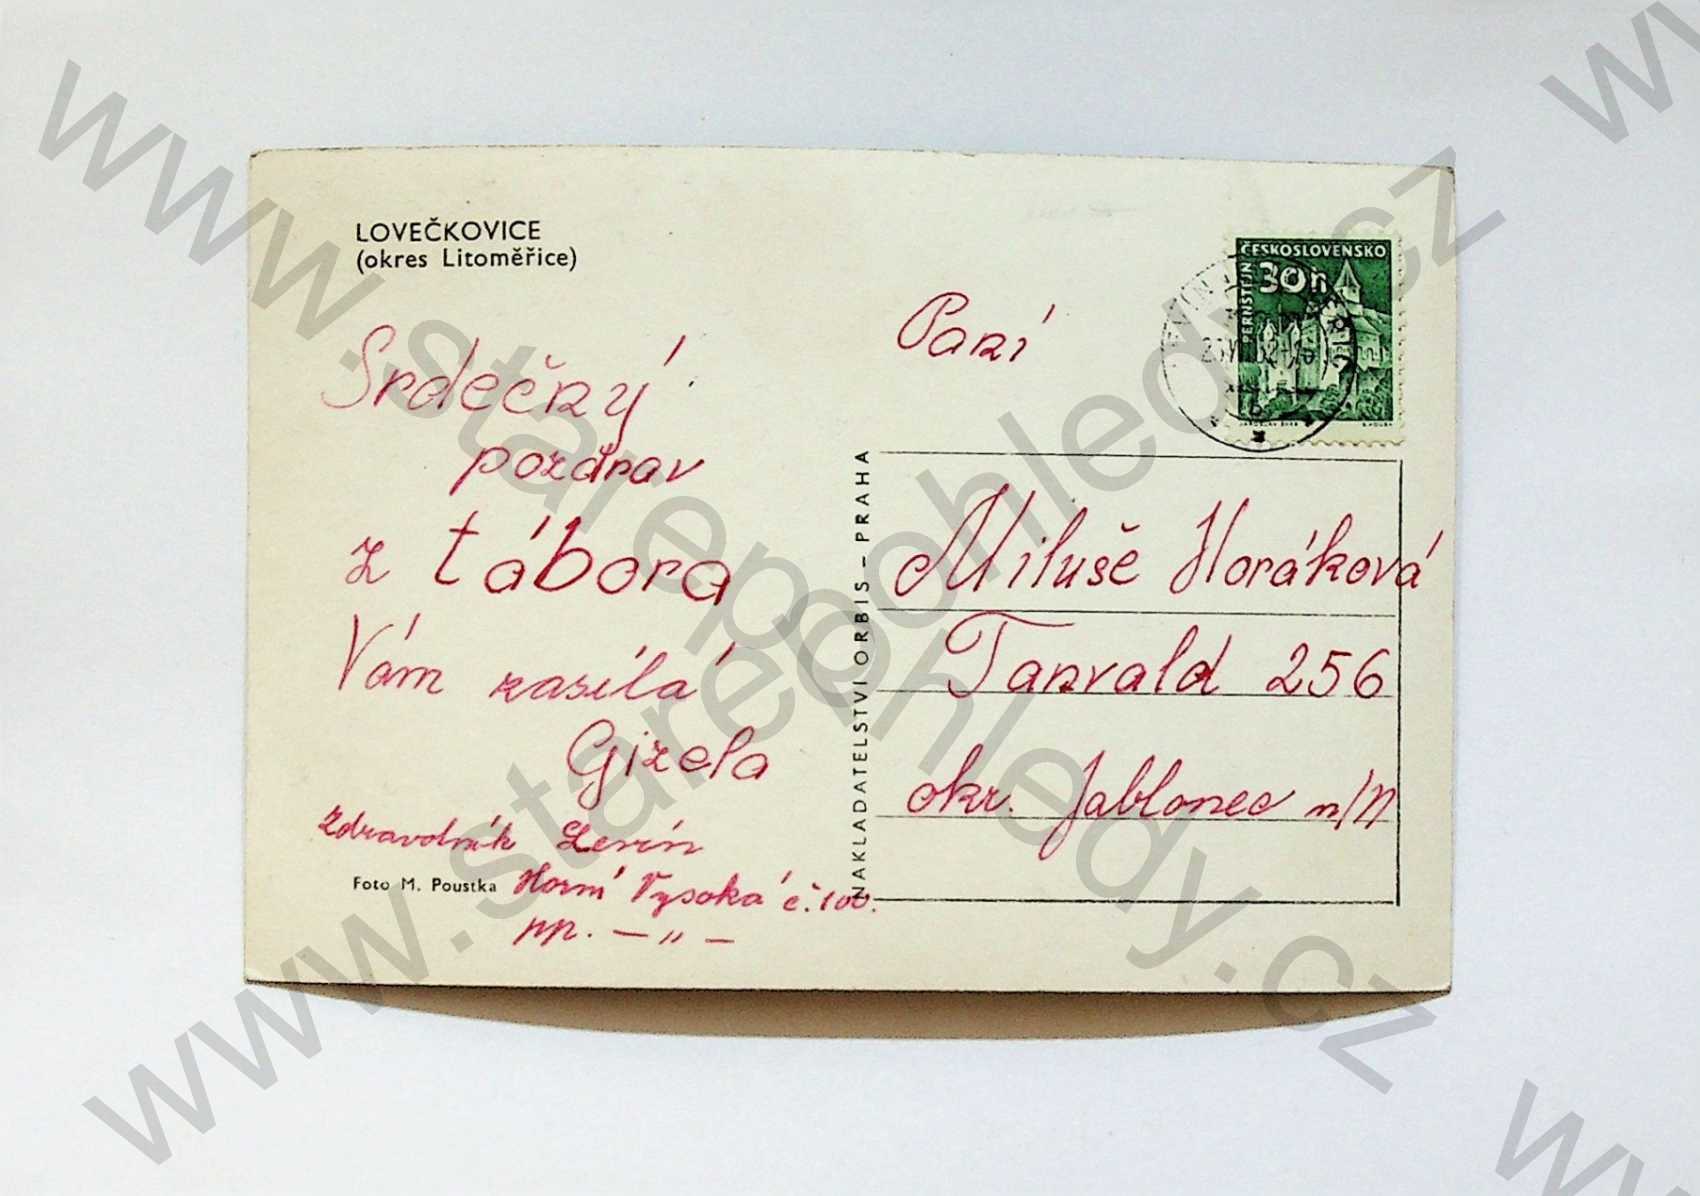 LOVEČKOVICE
(okres Litoměřice)
Srdečný
pozdrav
z tábora
Vám zasílá
Gizela
Zdravotník Levín
Horní Vysoká č. 100.
pp. — „ —
Foto M. Poustka
NAKLADATELSTVÍ ORBIS – PRAHA
ČESKOSLOVENSKO
30h
PERNŠTEJN
Paní
Miluše Horáková
Tanvald 256
okr. Jablonec n/N
www.starepohledy.cz
www.starepohledy.cz